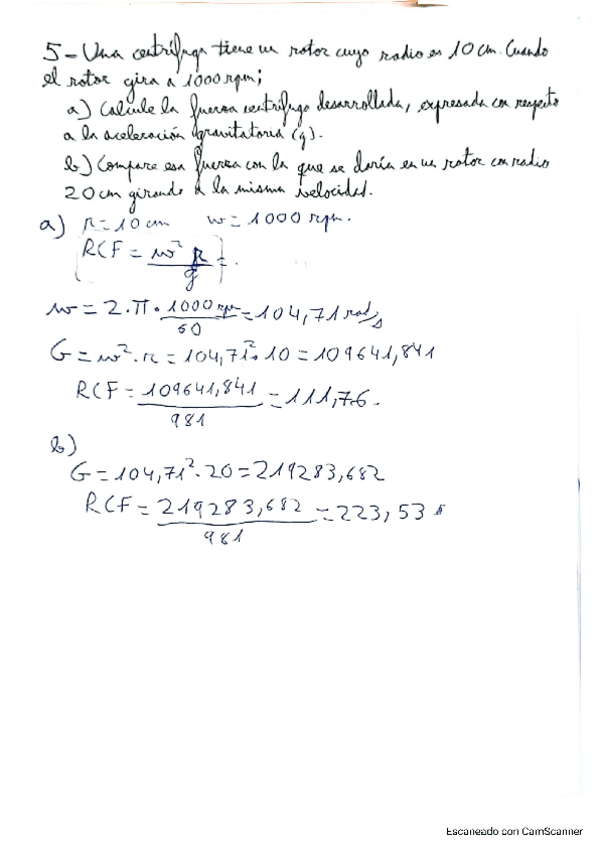 5- Una centrífuga tiene un rotor cuyo radio es 10 cm. Cuando
el rotor gira a 1000 rpm;
a) Calcule la fuerza centrífuga desarrollada, expresada con respecto
a la aceleración gravitatoria (g).
b) Compare esa fuerza con la que se daría en un rotor con radio
20 cm girando a la misma velocidad.
a) r = 10 cm w = 1000 rpm.
RCF = w² R / g = .
w = 2·π· 1000 rpm / 60 = 104,71 rad/s
G = w²·r = 104,71²·10 = 109641,841
RCF = 109641,841 / 981 = 111,76.
b)
G = 104,71²·20 = 219283,682
RCF = 219283,682 / 981 = 223,53
Escaneado con CamScanner